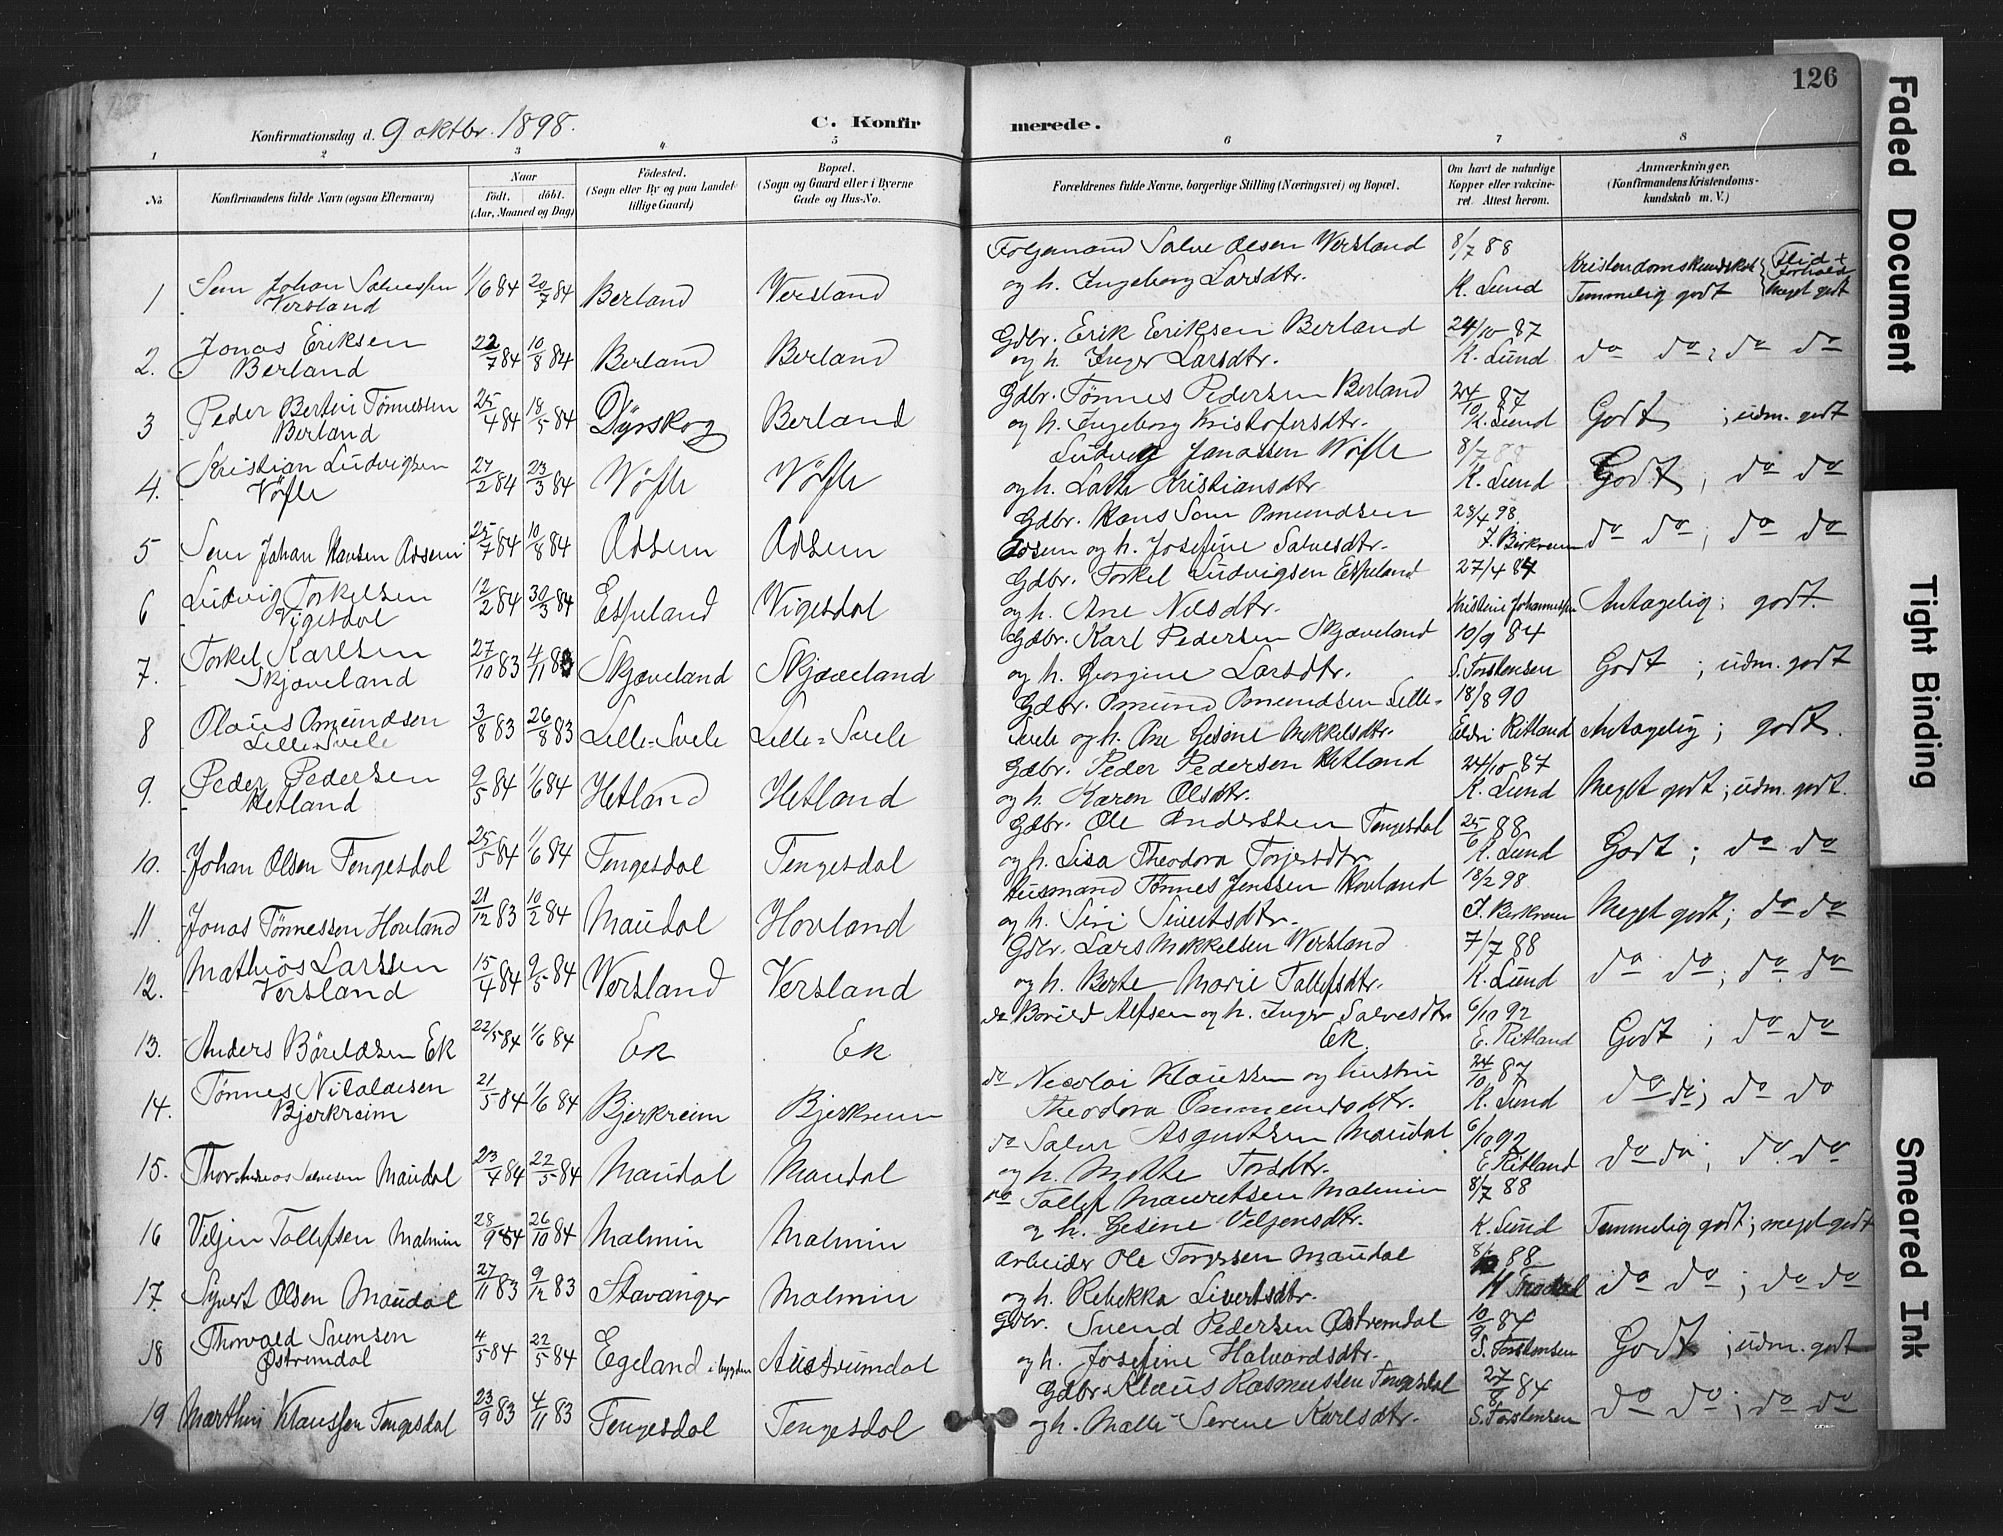 126
Konfirmationsdag d. 9 oktbr. 1898.
C. Konfirmerede.
1 2 3 4 5 6 7 8
No.
Konfirmandens fulde Navn (ogsaa Efternavn)
Naar
Födt. döbt.
(Aar, Maaned og Dag)
Födested.
(Sogn eller By og paa Landet tillige Gaard)
Bopæl.
(Sogn og Gaard eller i Byerne Gade og Hus-No.
Forældrenes fulde Navne, borgerlige Stilling (Næringsvei) og Bopæl.
Om havt de naturlige Kopper eller vakcineret. Attest herom.
Anmærkninger.
(Konfirmandens Kristendomskundskab m. V.)
1 Sem Johan Salvesen Versland 1/6 84 20/7 84 Berland Versland Salve Olsen Versland og h. Ingeborg Larsdtr. 8/7 88 K. Lund Kristendomskundskab Temmelig godt Flid + Forhold Meget godt
2. Jonas Eriksen Berland 22/7 84 10/8 84 Berland Berland Gdbr. Erik Eriksen Berland og h. Inger Larsdtr. 24/10 87 K. Lund do do ; do do
3 Peder Bertin Tönnessen Berland 25/4 84 18/5 84 Dyrskog Berland Gdbr. Tönnes Pedersen Berland og h. Ingeborg Kristofersdtr. 24/10 87 K. Lund Godt ; udm. godt
4. Kristian Ludvigsen Vöfle 27/2 84 23/3 84 Vöfle Vöfle Ludvig Jonassen Vöfle og h. Kristiansdtr. 8/7 88 K. Lund Godt ; do do
5 Sem Johan Hansen Odsem 25/7 84 10/8 84 Odsem Odsem Gdbr. Hans Sem Omundsen Odsem og h. Josefine Salvesdtr. 23/4 98 J. Birkreim do do ; do do
6 Ludvig Torkelsen Vigesdal 12/2 84 30/3 84 Espeland Vigesdal Gdbr. Torkel Ludvigsen Espeland og h. Ane Nilsdtr. 27/4 84 Kristine Johannessen Antagelig ; godt.
7. Torkel Karlsen Skjæveland 27/10 83 4/11 83 Skjæveland Skjæveland Gdbr. Karl Pedersen Skjæveland og h. Georgine Larsdtr. 10/9 84 S. Torstensen Godt ; udm. godt
8 Olaus Omundsen Lille-Svele 3/8 83 26/8 83 Lille-Svele Lille-Svele Gdbr. Omund Omundsen Lille-Svele og h. Ane Gesine Mikkelsdtr. 18/8 90 Eldri Ritland Antagelig ; godt.
9. Peder Pedersen Hetland 9/5 84 1/6 84 Hetland Hetland Gdbr. Peder Pedersen Hetland og h. Karen Olsdtr. 24/10 87 K. Lund Meget godt ; udm. godt.
10. Johan Olsen Tengesdal 25/5 84 1/6 84 Tengesdal Tengesdal Gdbr. Ole Anderssen Tengesdal og h. Lisa Theodora Torjersdtr. 25/6 88 K. Lund Godt ; do do
11. Jonas Tönnessen Hovland 21/12 83 10/2 84 Maudal Hovland Husmand Tönnes Jenssen Hovland og h. Siri Sivertsdtr. 18/2 98 J. Birkreim Meget godt ; do do
12. Mathias Larssen Versland 15/4 84 9/5 84 Versland Versland Gdbr. Lars Mikkelsen Versland og h. Berte Marie Tollefsdtr. 7/7 88 K. Lund do do ; do do
13. Anders Börildsen Ek 22/5 84 1/6 84 Ek Ek do Borild Alfsen og h. Inger Salvesdtr Ek 6/10 92 E. Ritland Godt ; do do
14. Tönnes Nikolaisen Bjerkreim 21/5 84 1/6 84 Bjerkreim Bjerkreim do Nicolai Klaussen og hustru Theodora Ommundsdtr. 24/10 87 K. Lund do do ; do do
15. Thor Andreas Salvesen Maudal 23/4 84 22/5 84 Maudal Maudal do Salve Asgautsen Maudal og h. Malle Torsdtr. 6/10 92 E. Ritland do do ; do do
16 Viljen Tollefsen Malmin 28/9 84 26/10 84 Malmin Malmin do Tollef Mauritsen Malmin og h. Gesine Veljensdtr. 8/7 88 K. Lund Temmelig godt ; meget godt
17. Syvert Olsen Maudal 27/11 83 9/12 83 Stavanger Malmin Arbeider Ole Torgessen Maudal og h. Rebekka Sivertsdtr. 88 do do ; do do
18 Thorvald Svensen Östremdal 4/5 84 22/5 84 Egeland i bygden Austrumdal Gdbr. Svend Pedersen Östremdal og h. Josefine Halvardsdtr. 10/9 84 S. Torstensen Godt ; udm. godt
19 Marthin Klaussen Tengesdal 23/9 83 4/11 83 Tengesdal Tengesdal Gdbr. Klaus Rasmussen Tengesdal og h. Malle Serene Karlsdtr. 27/8 84 S. Torstensen do do ; do do
Faded Document
Tight Binding
Smeared Ink